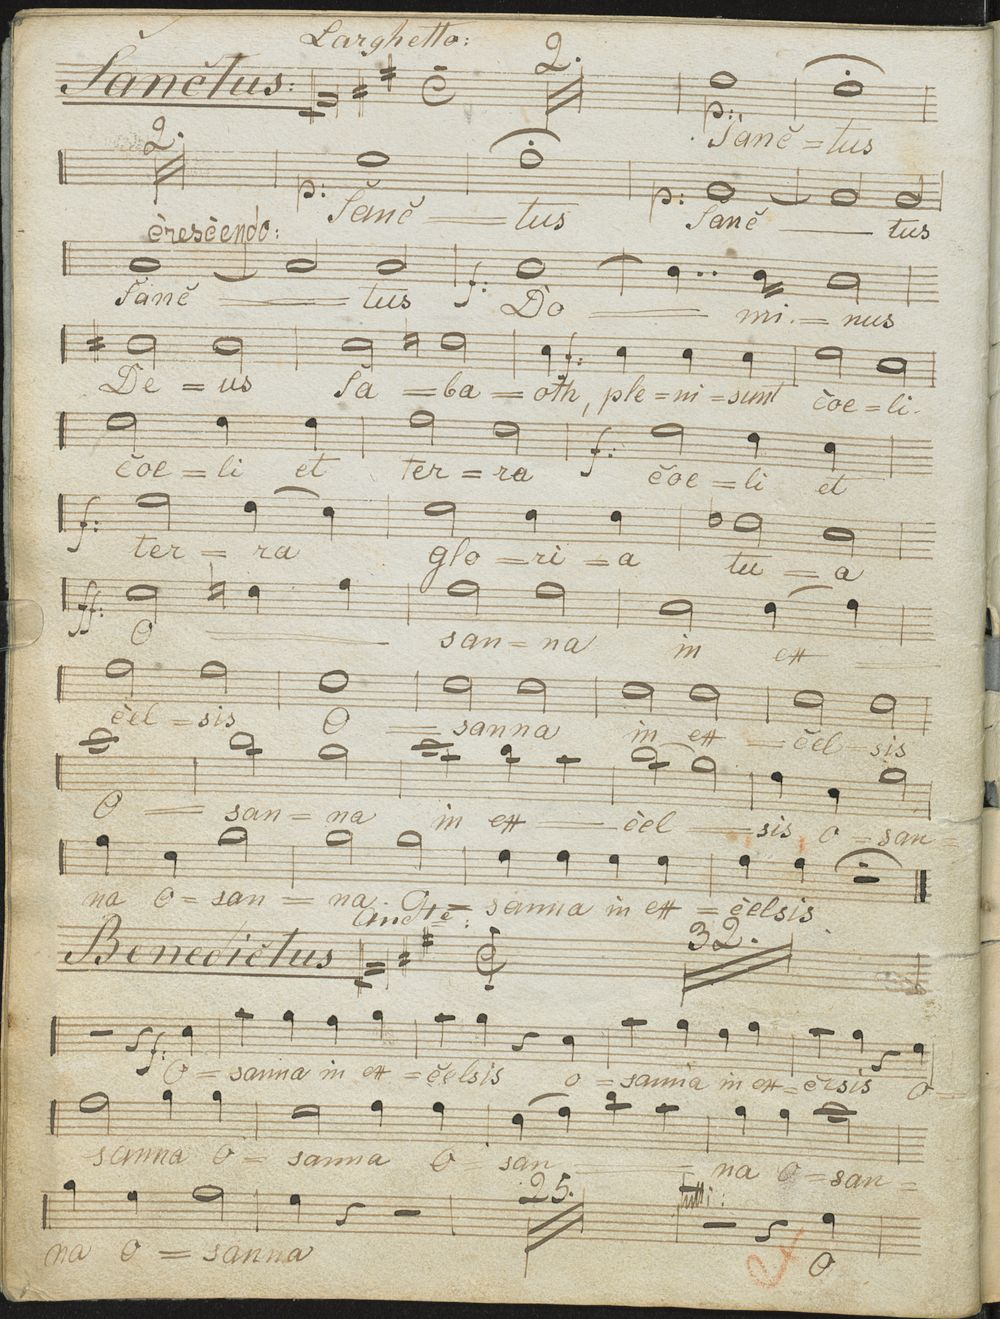 Larghetto:
Sanctus: 2.
p: Sanc = tus
2.
p: Sanc — tus p: Sanc — tus
crescendo:
Sanc — tus f: Do — mi = nus
De = us Sa = ba = oth, f: ple = ni = sunt coe = li.
coe = li et ter = ra f: coe = li et
f: ter = ra glo = ri = a tu = a
ff: O — san = na in ex —
cel = sis O — sanna in ex — cel sis
O — san = na in ex — cel — sis o = san =
na O = san = na. O = sanna in ex = celsis
Andte:
Benedictus 32.
f: O = sanna in ex = celsis o = sanna in ex = celsis O =
sanna O = sanna O = san — na O = san =
25. Tutti:
na O = sanna O